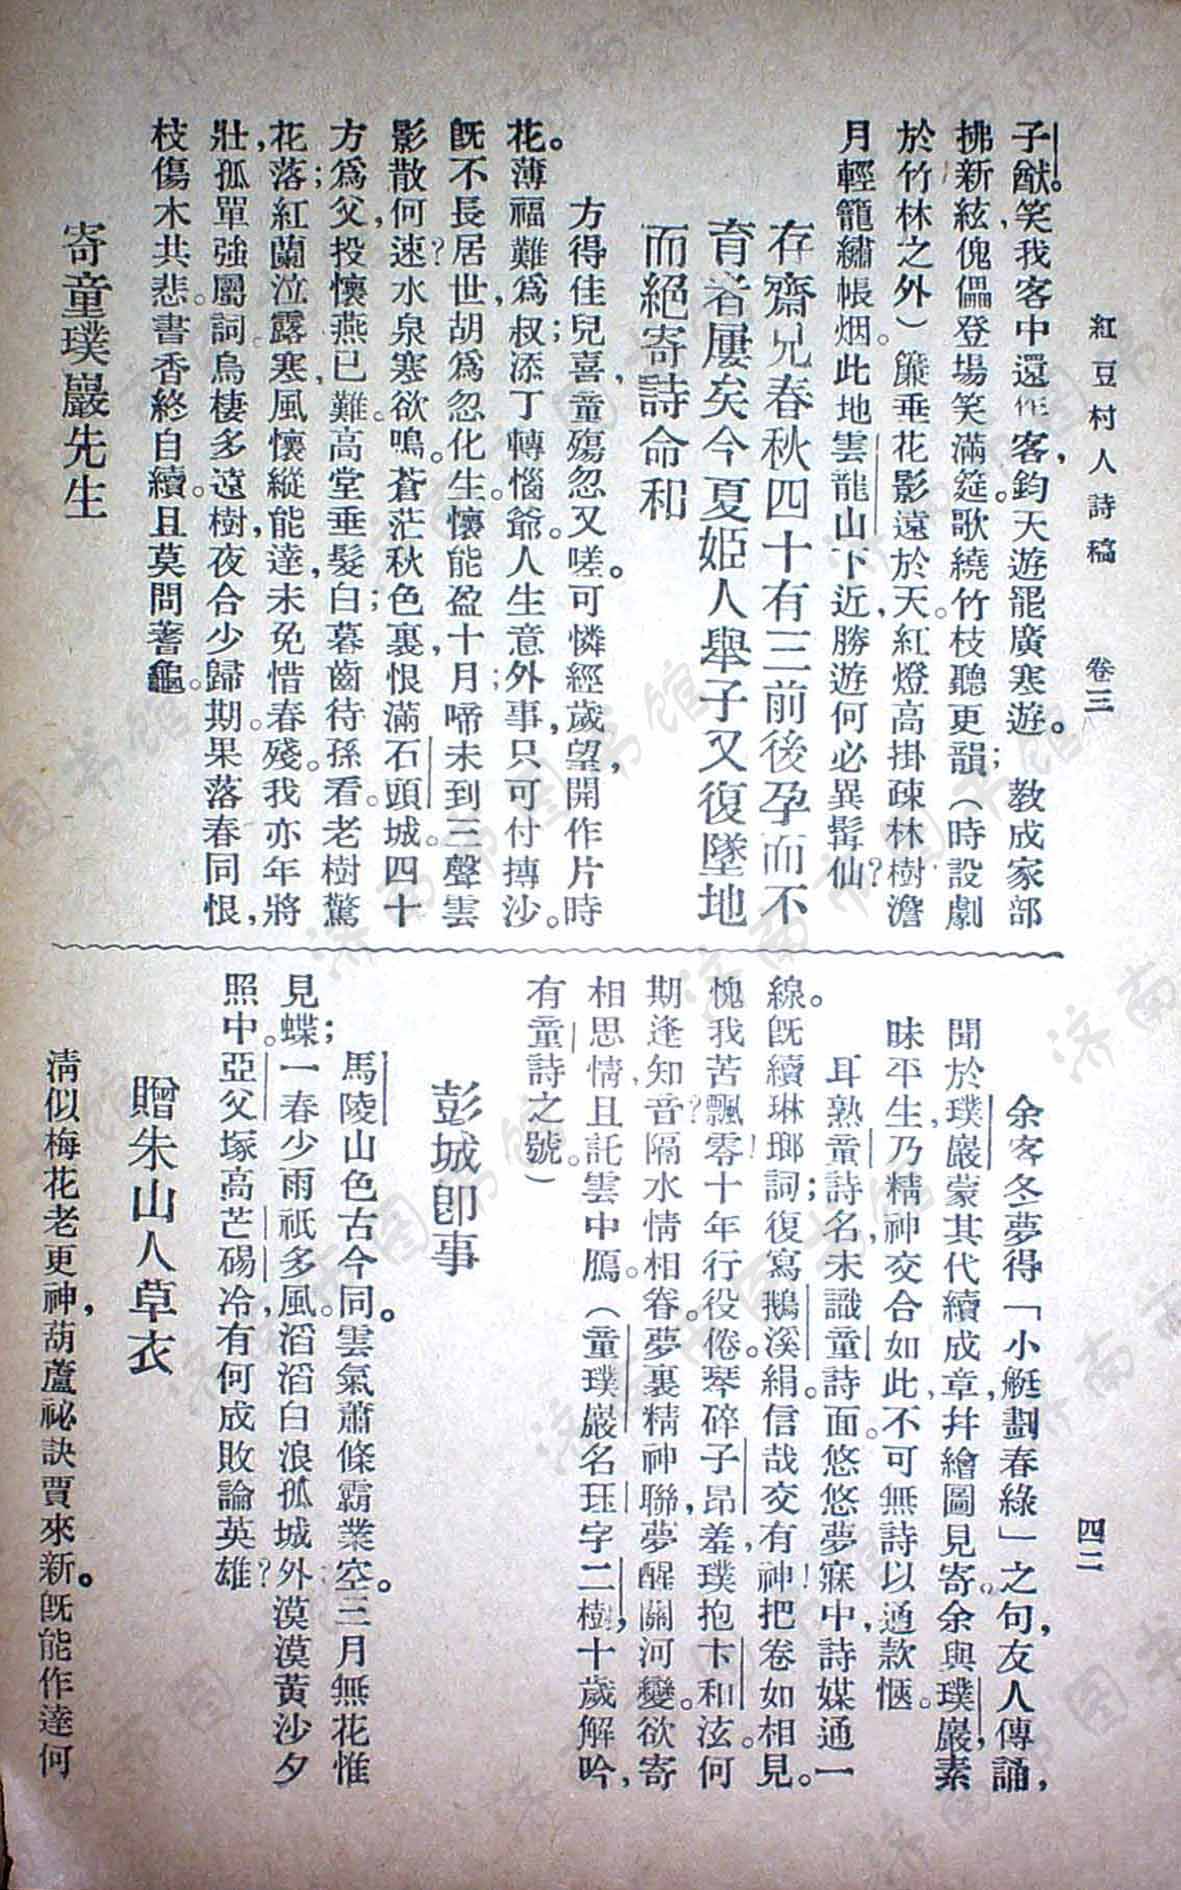 紅豆村人詩稿　卷三　四二
子猷。笑我客中還作客，鈞天遊罷廣寒遊。　教成家部
拂新絃，傀儡登場笑滿筵。歌繞竹枝聽更韻；（時設劇
於竹林之外）簾垂花影遠於天。紅燈高掛疎林樹，澹
月輕籠繡帳烟。此地雲龍山下近，勝遊何必異髯仙？
存齋兄春秋四十有三前後孕而不
育者屢矣今夏姬人舉子又復墜地
而絕寄詩命和
方得佳兒喜，童殤忽又嗟。可憐經歲望，開作片時
花。薄福難爲叔；添丁轉惱爺。人生意外事，只可付摶沙。
既不長居世，胡爲忽化生。懷能盈十月；啼未到三聲。雲
影散何速？水泉寒欲鳴。蒼茫秋色裏，恨滿石頭城。四十
方爲父，投懷燕已難。高堂垂髮白；暮齒待孫看。老樹驚
花落；紅蘭泣露寒。風懷縱能達，未免惜春殘。我亦年將
壯，孤單強屬詞。烏棲多遠樹，夜合少歸期。果落春同恨，
枝傷木共悲。書香終自續，且莫問蓍龜。
寄童璞巖先生
余客冬夢得「小艇劃春綠」之句，友人傳誦，
聞於璞巖，蒙其代續成章，幷繪圖見寄。余與璞巖，素
昧平生，乃精神交合如此，不可無詩以通款愜。
耳熟童詩名，未識童詩面。悠悠夢寐中，詩媒通一
線。既續琳瑯詞；復寫鵝溪絹。信哉交有神！把卷如相見。
愧我苦飄零！十年行役倦。琴碎子昂羞，璞抱卞和泫。何
期逢知音？隔水情相眷。夢裏精神聯，夢醒關河變。欲寄
相思情，且託雲中鴈。（童璞巖名珏，字二樹，十歲解吟，
有童詩之號。）
彭城卽事
馬陵山色古今同。雲氣蕭條霸業空。三月無花惟
見蝶；一春少雨祇多風。滔滔白浪孤城外；漠漠黃沙夕
照中。亞父塚高芒碭冷，有何成敗論英雄？
贈朱山人草衣
淸似梅花老更神，葫蘆祕訣賈來新。既能作達何